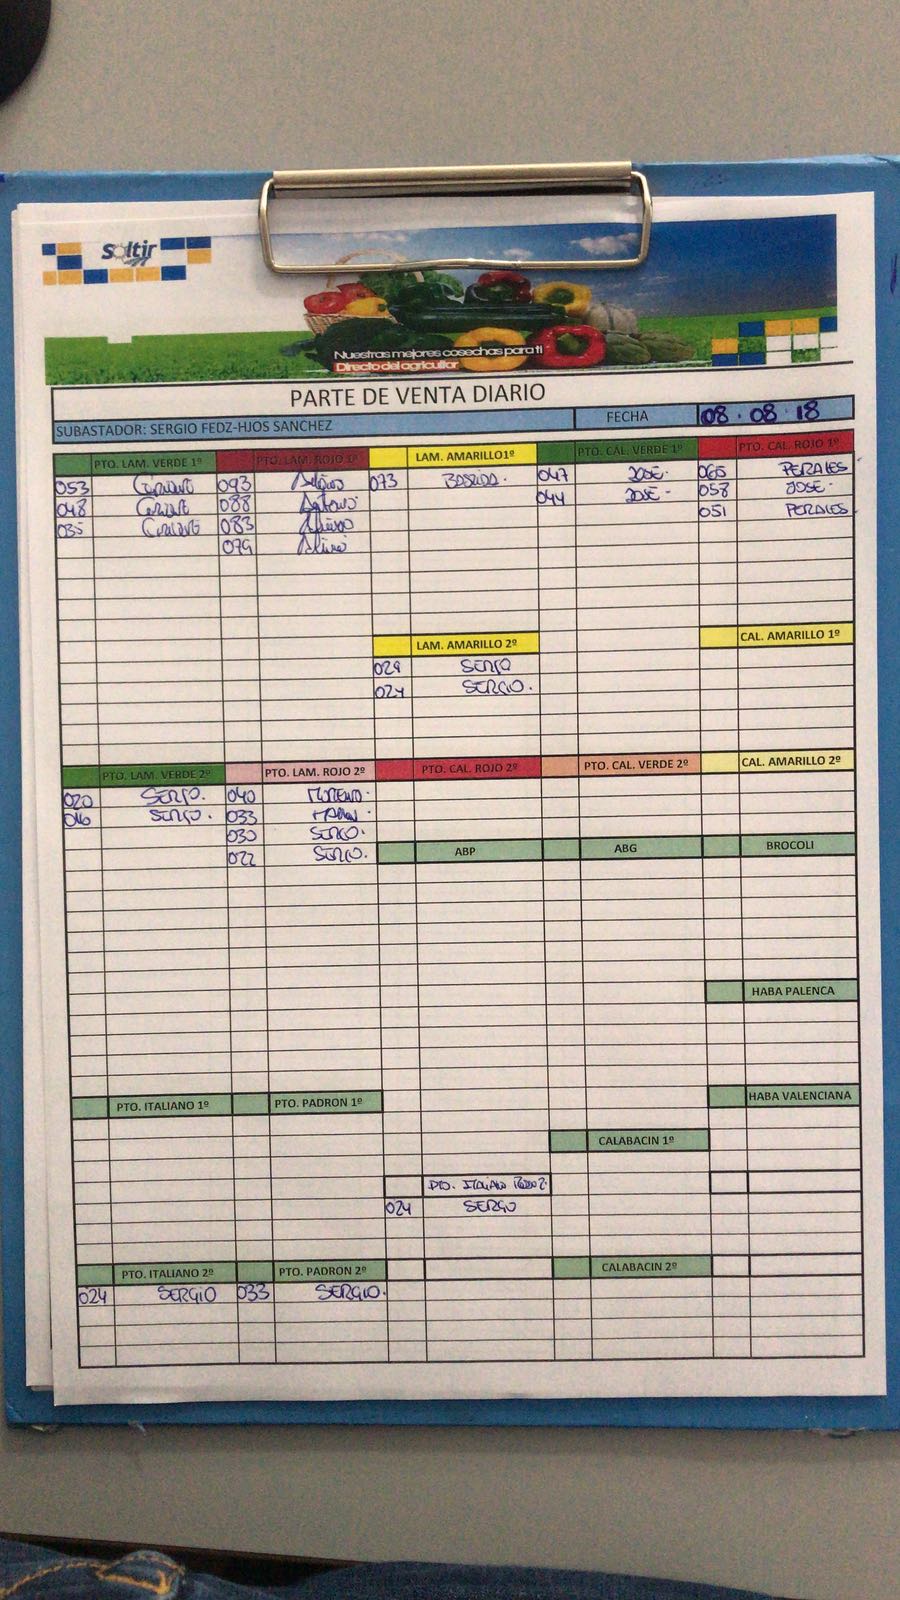 Soltir
Nuestras mejores cosechas para ti
Directo del agricultor
PARTE DE VENTA DIARIO
SUBASTADOR: SERGIO FEDZ-HJOS SANCHEZ FECHA 08·08·18
PTO. LAM. VERDE 1º PTO. LAM. ROJO 1º LAM. AMARILLO1º PTO. CAL. VERDE 1º PTO. CAL. ROJO 1º
053 093 073 047 JOSE· 065 PERALES
048 088 044 JOSE- 058 JOSE·
035 083 051 PERALES
079
LAM. AMARILLO 2º CAL. AMARILLO 1º
029 SERGIO
024 SERGIO.
PTO. LAM. VERDE 2º PTO. LAM. ROJO 2º PTO. CAL. ROJO 2º PTO. CAL. VERDE 2º CAL. AMARILLO 2º
020 SERGIO. 040 MORENO·
016 SERGIO. 033
030 SERGIO.
022 SERGIO.
ABP ABG BROCOLI
HABA PALENCA
PTO. ITALIANO 1º PTO. PADRON 1º HABA VALENCIANA
CALABACIN 1º
PTO. ITALIANO
024 SERGIO
PTO. ITALIANO 2º PTO. PADRON 2º CALABACIN 2º
024 SERGIO 033 SERGIO.